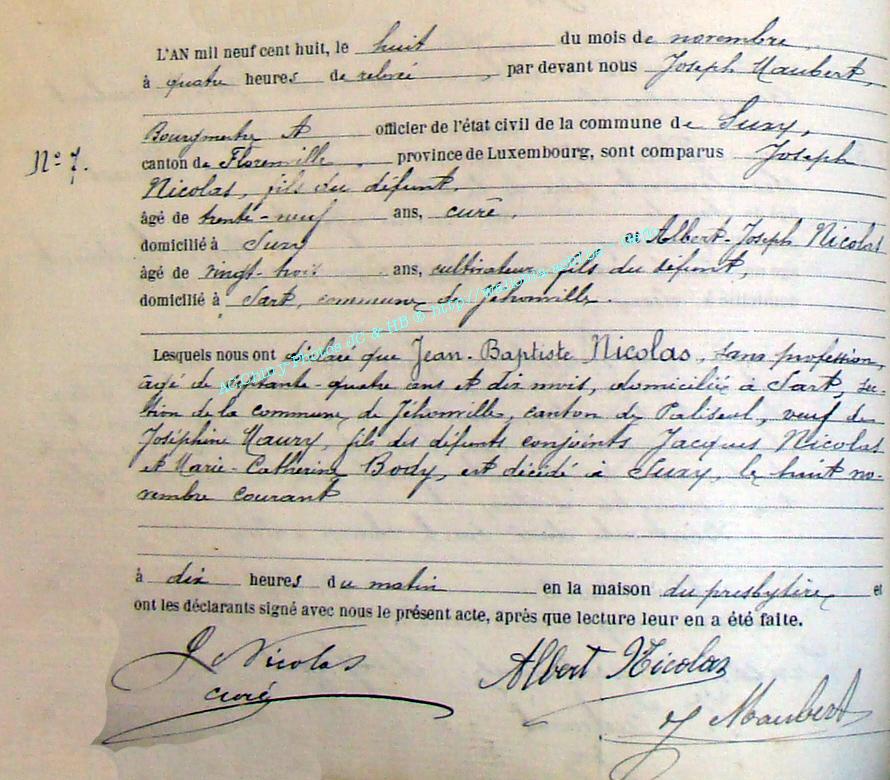 L'AN mil neuf cent huit, le huit du mois de novembre,
à quatre heures de relevé, par devant nous Joseph Maubert,
Bourgmestre et officier de l'état civil de la commune de Suxy,
N° 7.
canton de Florenville, province de Luxembourg, sont comparus Joseph
Nicolas, fils du défunt,
âgé de trente-neuf ans, curé,
domicilié à Suxy et Albert-Joseph Nicolas
âgé de vingt-trois ans, cultivateur, fils du défunt,
domicilié à Sart, commune de Jéhonville.
Lesquels nous ont déclaré que Jean-Baptiste Nicolas, sans profession,
âgé de septante-quatre ans et dix mois, domicilié à Sart, sec-
tion de la commune de Jéhonville, canton de Paliseul, veuf de
Joséphine Maury, fils des défunts conjoints Jacques Nicolas
et Marie-Catherine Body, est décédé à Suxy, le huit no-
vembre courant
à dix heures du matin en la maison du presbytère et
ont les déclarants signé avec nous le présent acte, après que lecture leur en a été faite.
J Nicolas
curé
Albert Nicolas
J Maubert